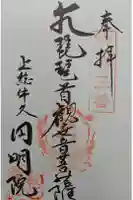 奉拝
琵琶首観世音菩薩
上総牛久 円明院